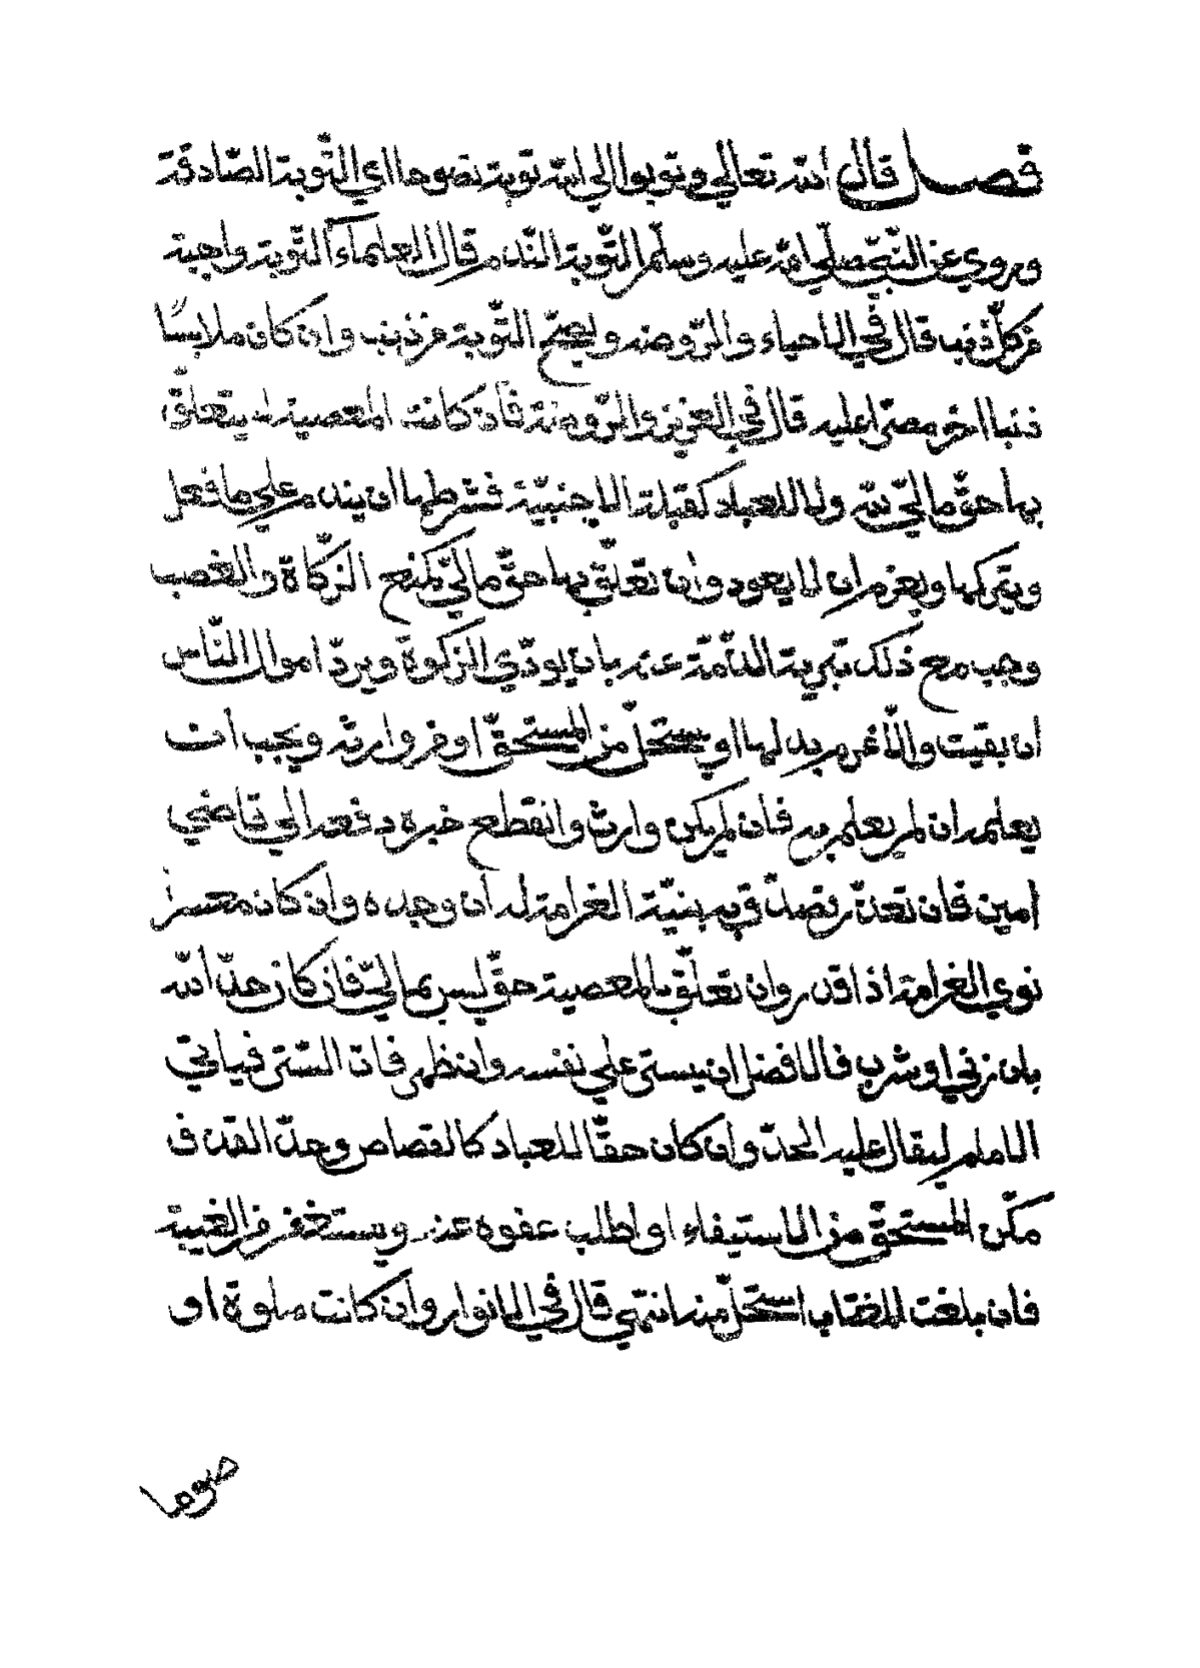 فصل قال الله تعالي وتوبوا الي الله توبة نصوحا اي التّوبة الصّادقة
وروي عن النّبيّ صلّي الله عليه وسلّم التّوبة النّدم قال العلماء التّوبة واجبة
من كلّ ذنب قال في الاحياء والرّوضه ويصحّ التّوبة من ذنب وان كان ملابسًا
ذنبا اخر مصرّا عليه قال في العزيز والرّوضة فان كانت المعصية لا يتعلّق
بها حقّ ماليّ لله ولا للعباد كقبلة الاجنبيّة فشرطها ان يندم علي ما فعل
ويتركها ويعزم ان لا يعود وان تعلّق بها حقّ ماليّ كمنع الزّكاة والغصب
وجب مع ذلك تبرية الذّمّة عنه بان يودّي الزّكوة ويردّ اموال النّاس
ان بقيت والّا غرم بدلها او يستحلّ من المستحقّ او من وارثه ويجب ان
يعلمه ان لم يعلم به فان لم يكن وارث وانقطع خبره دفعه الي قاضي
امين فان تعذّر تصدّق به بنيّة الغرامة له ان وجده وان كان معسرا
نوي الغرامة اذا قدر وان تعلّق بالمعصية حقّ ليس بماليّ فان كان حدّ الله
بان زني او شرب فالافضل ان يستر علي نفسه وان ظهر فات السّتر فياتي
الامام ليقال عليه الحدّ وان كان حقّا للعباد كالقصاص وحدّ القذف
مكّن المستحقّ من الاستيفاء او اطلب عفوه عنه ويستغفر من الغيبة
فان بلغت المغتاب استحلّ منه انتهي قال في الانوار وان كانت صلوة او
صوما